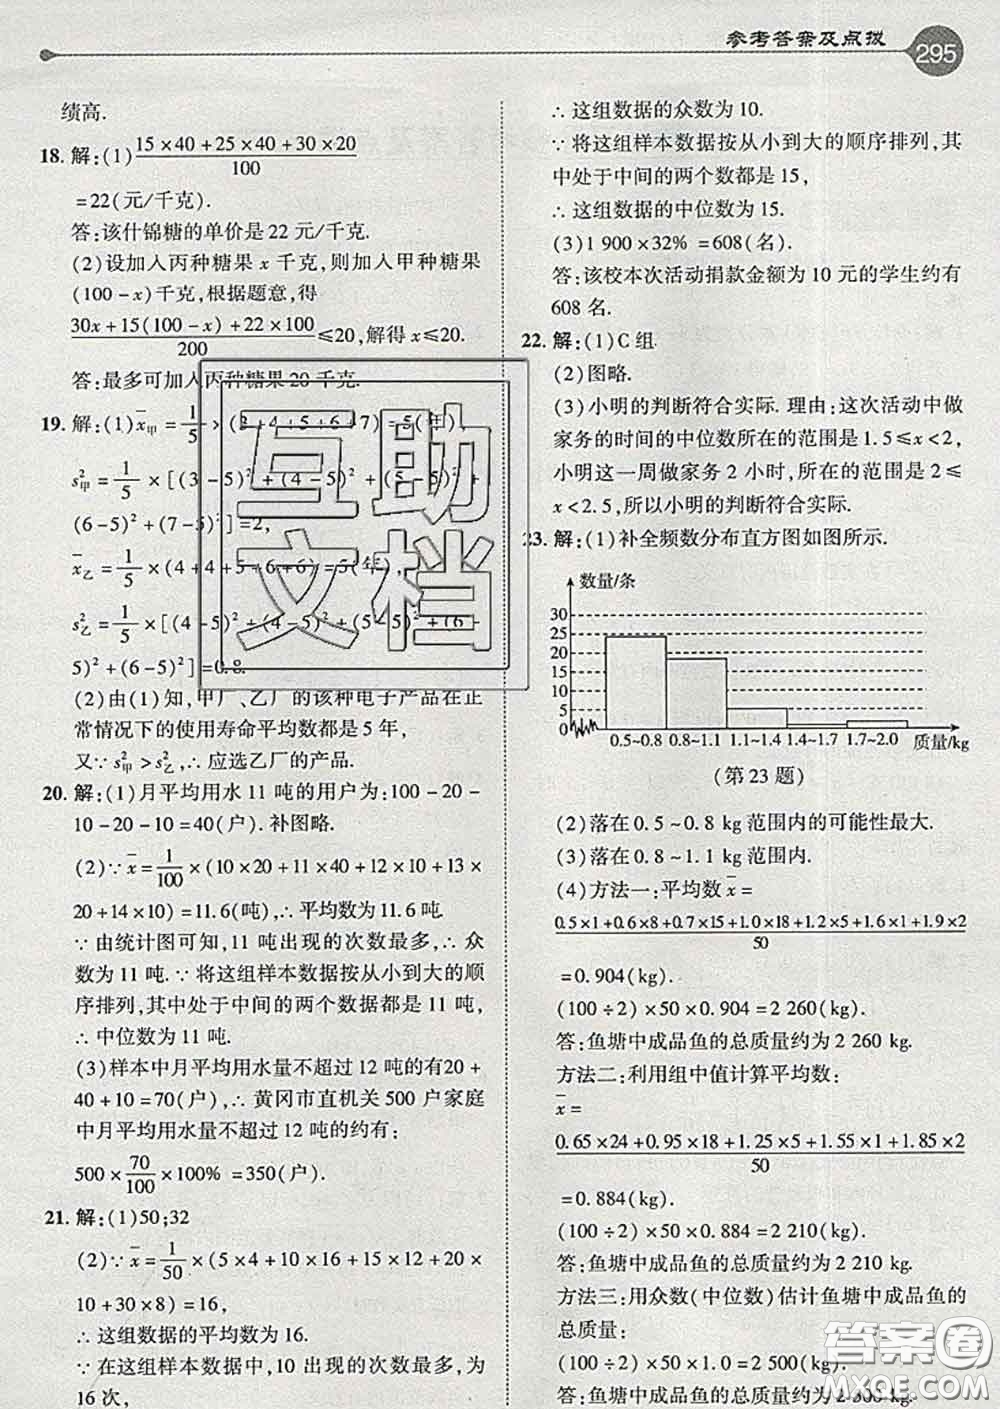 参考答案及点拨
295
绩高.
18. 解:(1)(15×40+25×40+30×20)/100
=22(元/千克).
答:该什锦糖的单价是 22 元/千克.
(2)设加入丙种糖果 x 千克,则加入甲种糖果
(100-x)千克,根据题意,得
(30x+15(100-x)+22×100)/200 ≤20,解得 x≤20.
答:最多可加入丙种糖果 20 千克.
19. 解:(1)x̄甲=1/5×(3+4+5+6+7)=5(年),
s²甲=1/5×[(3-5)²+(4-5)²+(5-5)²+
(6-5)²+(7-5)²]=2,
x̄乙=1/5×(4+4+5+6+6)=5(年),
s²乙=1/5×[(4-5)²+(4-5)²+(5-5)²+(6-
5)²+(6-5)²]=0.8.
(2)由(1)知,甲厂、乙厂的该种电子产品在正
常情况下的使用寿命平均数都是 5 年,
又∵s²甲>s²乙,∴应选乙厂的产品.
20. 解:(1)月平均用水 11 吨的用户为:100-20-
10-20-10=40(户). 补图略.
(2)∵x̄=1/100×(10×20+11×40+12×10+13×
20+14×10)=11.6(吨),∴平均数为 11.6 吨.
∵由统计图可知,11 吨出现的次数最多,∴众
数为 11 吨.∵将这组样本数据按从小到大的顺
序排列,其中处于中间的两个数据都是 11 吨,
∴中位数为 11 吨.
(3)样本中月平均用水量不超过 12 吨的有:20
+40+10=70(户),∴黄冈市直机关 500 户家庭
中月平均用水量不超过 12 吨的约有:
500×70/100×100%=350(户).
21. 解:(1)50;32
(2)∵x̄=1/50×(5×4+10×16+15×12+20×
10+30×8)=16,
∴这组数据的平均数为 16.
∵在这组样本数据中,10 出现的次数最多,为
16 次,
∴这组数据的众数为 10.
∵将这组样本数据按从小到大的顺序排列,其
中处于中间的两个数都是 15,
∴这组数据的中位数为 15.
(3)1 900×32%=608(名).
答:该校本次活动捐款金额为 10 元的学生约有
608 名.
22. 解:(1)C 组.
(2)图略.
(3)小明的判断符合实际. 理由:这次活动中做
家务的时间的中位数所在的范围是 1.5≤x<2,
小明这一周做家务 2 小时,所在的范围是 2≤
x<2.5,所以小明的判断符合实际.
23. 解:(1)补全频数分布直方图如图所示.
数量/条
30
25
20
15
10
5
0
0.5~0.8 0.8~1.1 1.1~1.4 1.4~1.7 1.7~2.0 质量/kg
(第 23 题)
(2)落在 0.5~0.8 kg 范围内的可能性最大.
(3)落在 0.8~1.1 kg 范围内.
(4)方法一:平均数 x̄=
(0.5×1+0.6×8+0.7×15+1.0×18+1.2×5+1.6×1+1.9×2)/50
=0.904(kg).
(100÷2)×50×0.904=2 260(kg).
答:鱼塘中成品鱼的总质量约为 2 260 kg.
方法二:利用组中值计算平均数:
x̄=
(0.65×24+0.95×18+1.25×5+1.55×1+1.85×2)/50
=0.884(kg).
(100÷2)×50×0.884=2 210(kg).
答:鱼塘中成品鱼的总质量约为 2 210 kg.
方法三:用众数(中位数)估计鱼塘中成品鱼的
总质量:
(100÷2)×50×1.0=2 500(kg).
答:鱼塘中成品鱼的总质量约为 2 500 kg.
互助
文档
答案圈
MXQE.COM